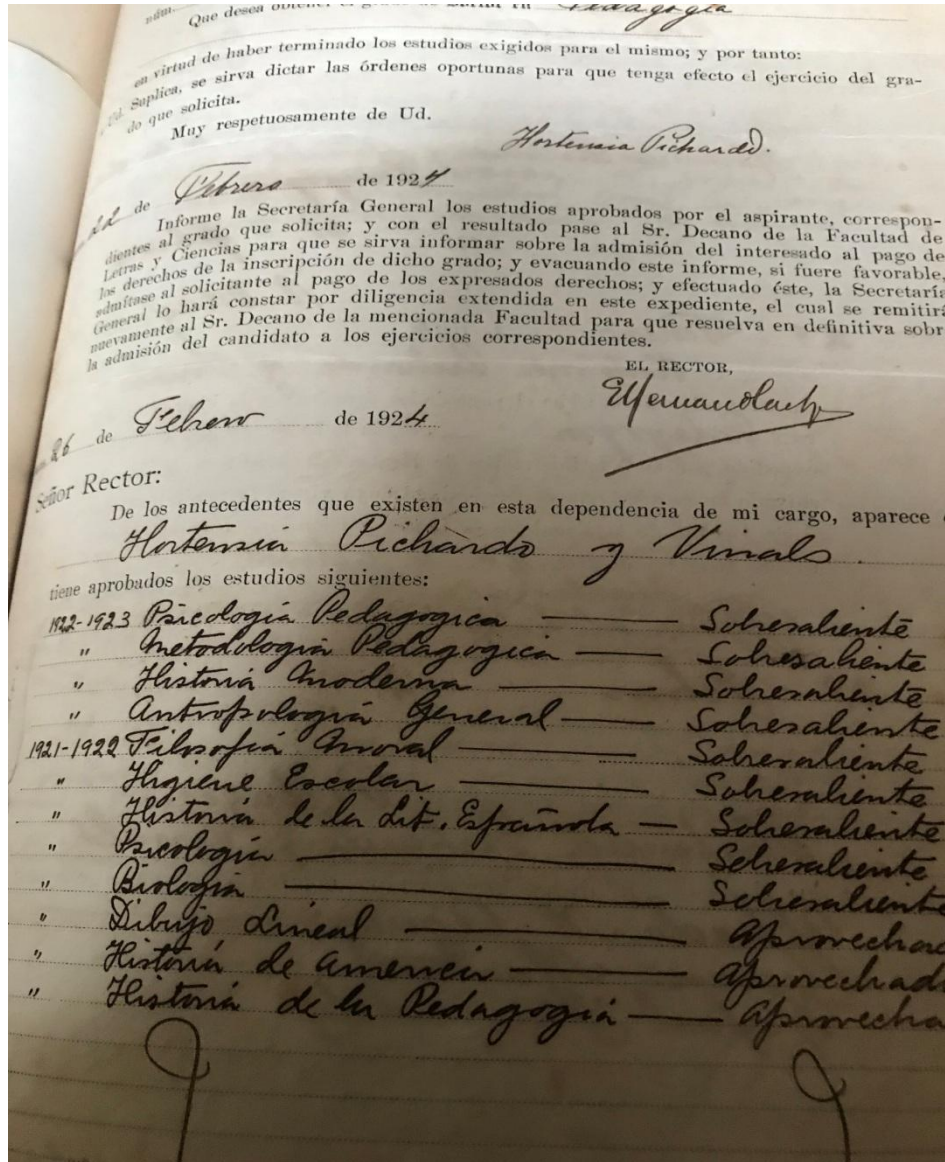 núm.
Que desea obtener el grado de Doctor en Pedagogía
en virtud de haber terminado los estudios exigidos para el mismo; y por tanto:
Ud. Suplica, se sirva dictar las órdenes oportunas para que tenga efecto el ejercicio del gra-
do que solicita.
Muy respetuosamente de Ud.
Hortensia Pichardo.
22 de Febrero de 1924
Informe la Secretaría General los estudios aprobados por el aspirante, correspon-
dientes al grado que solicita; y con el resultado pase al Sr. Decano de la Facultad de
Letras y Ciencias para que se sirva informar sobre la admisión del interesado al pago de
los derechos de la inscripción de dicho grado; y evacuando este informe, si fuere favorable,
admítase al solicitante al pago de los expresados derechos; y efectuado éste, la Secretaría
General lo hará constar por diligencia extendida en este expediente, el cual se remitirá
nuevamente al Sr. Decano de la mencionada Facultad para que resuelva en definitiva sobr
la admisión del candidato a los ejercicios correspondientes.
EL RECTOR,
26 de Febrero de 1924
Señor Rector:
De los antecedentes que existen en esta dependencia de mi cargo, aparece
Hortensia Pichardo y Vinals
tiene aprobados los estudios siguientes:
1922-1923 Psicología Pedagogica — Sobresaliente
" Metodologia Pedagogica — Sobresaliente
" Historia Moderna — Sobresaliente
" Antropologia General — Sobresaliente
1921-1922 Filosofia Moral — Sobresaliente
" Higiene Escolar — Sobresaliente
" Historia de la Lit. Española — Sobresaliente
" Psicologia — Sobresaliente
" Biologia — Sobresaliente
" Dibujo Lineal — Aprovechad
" Historia de America — Aprovechad
" Historia de la Pedagogia — Aprovecha